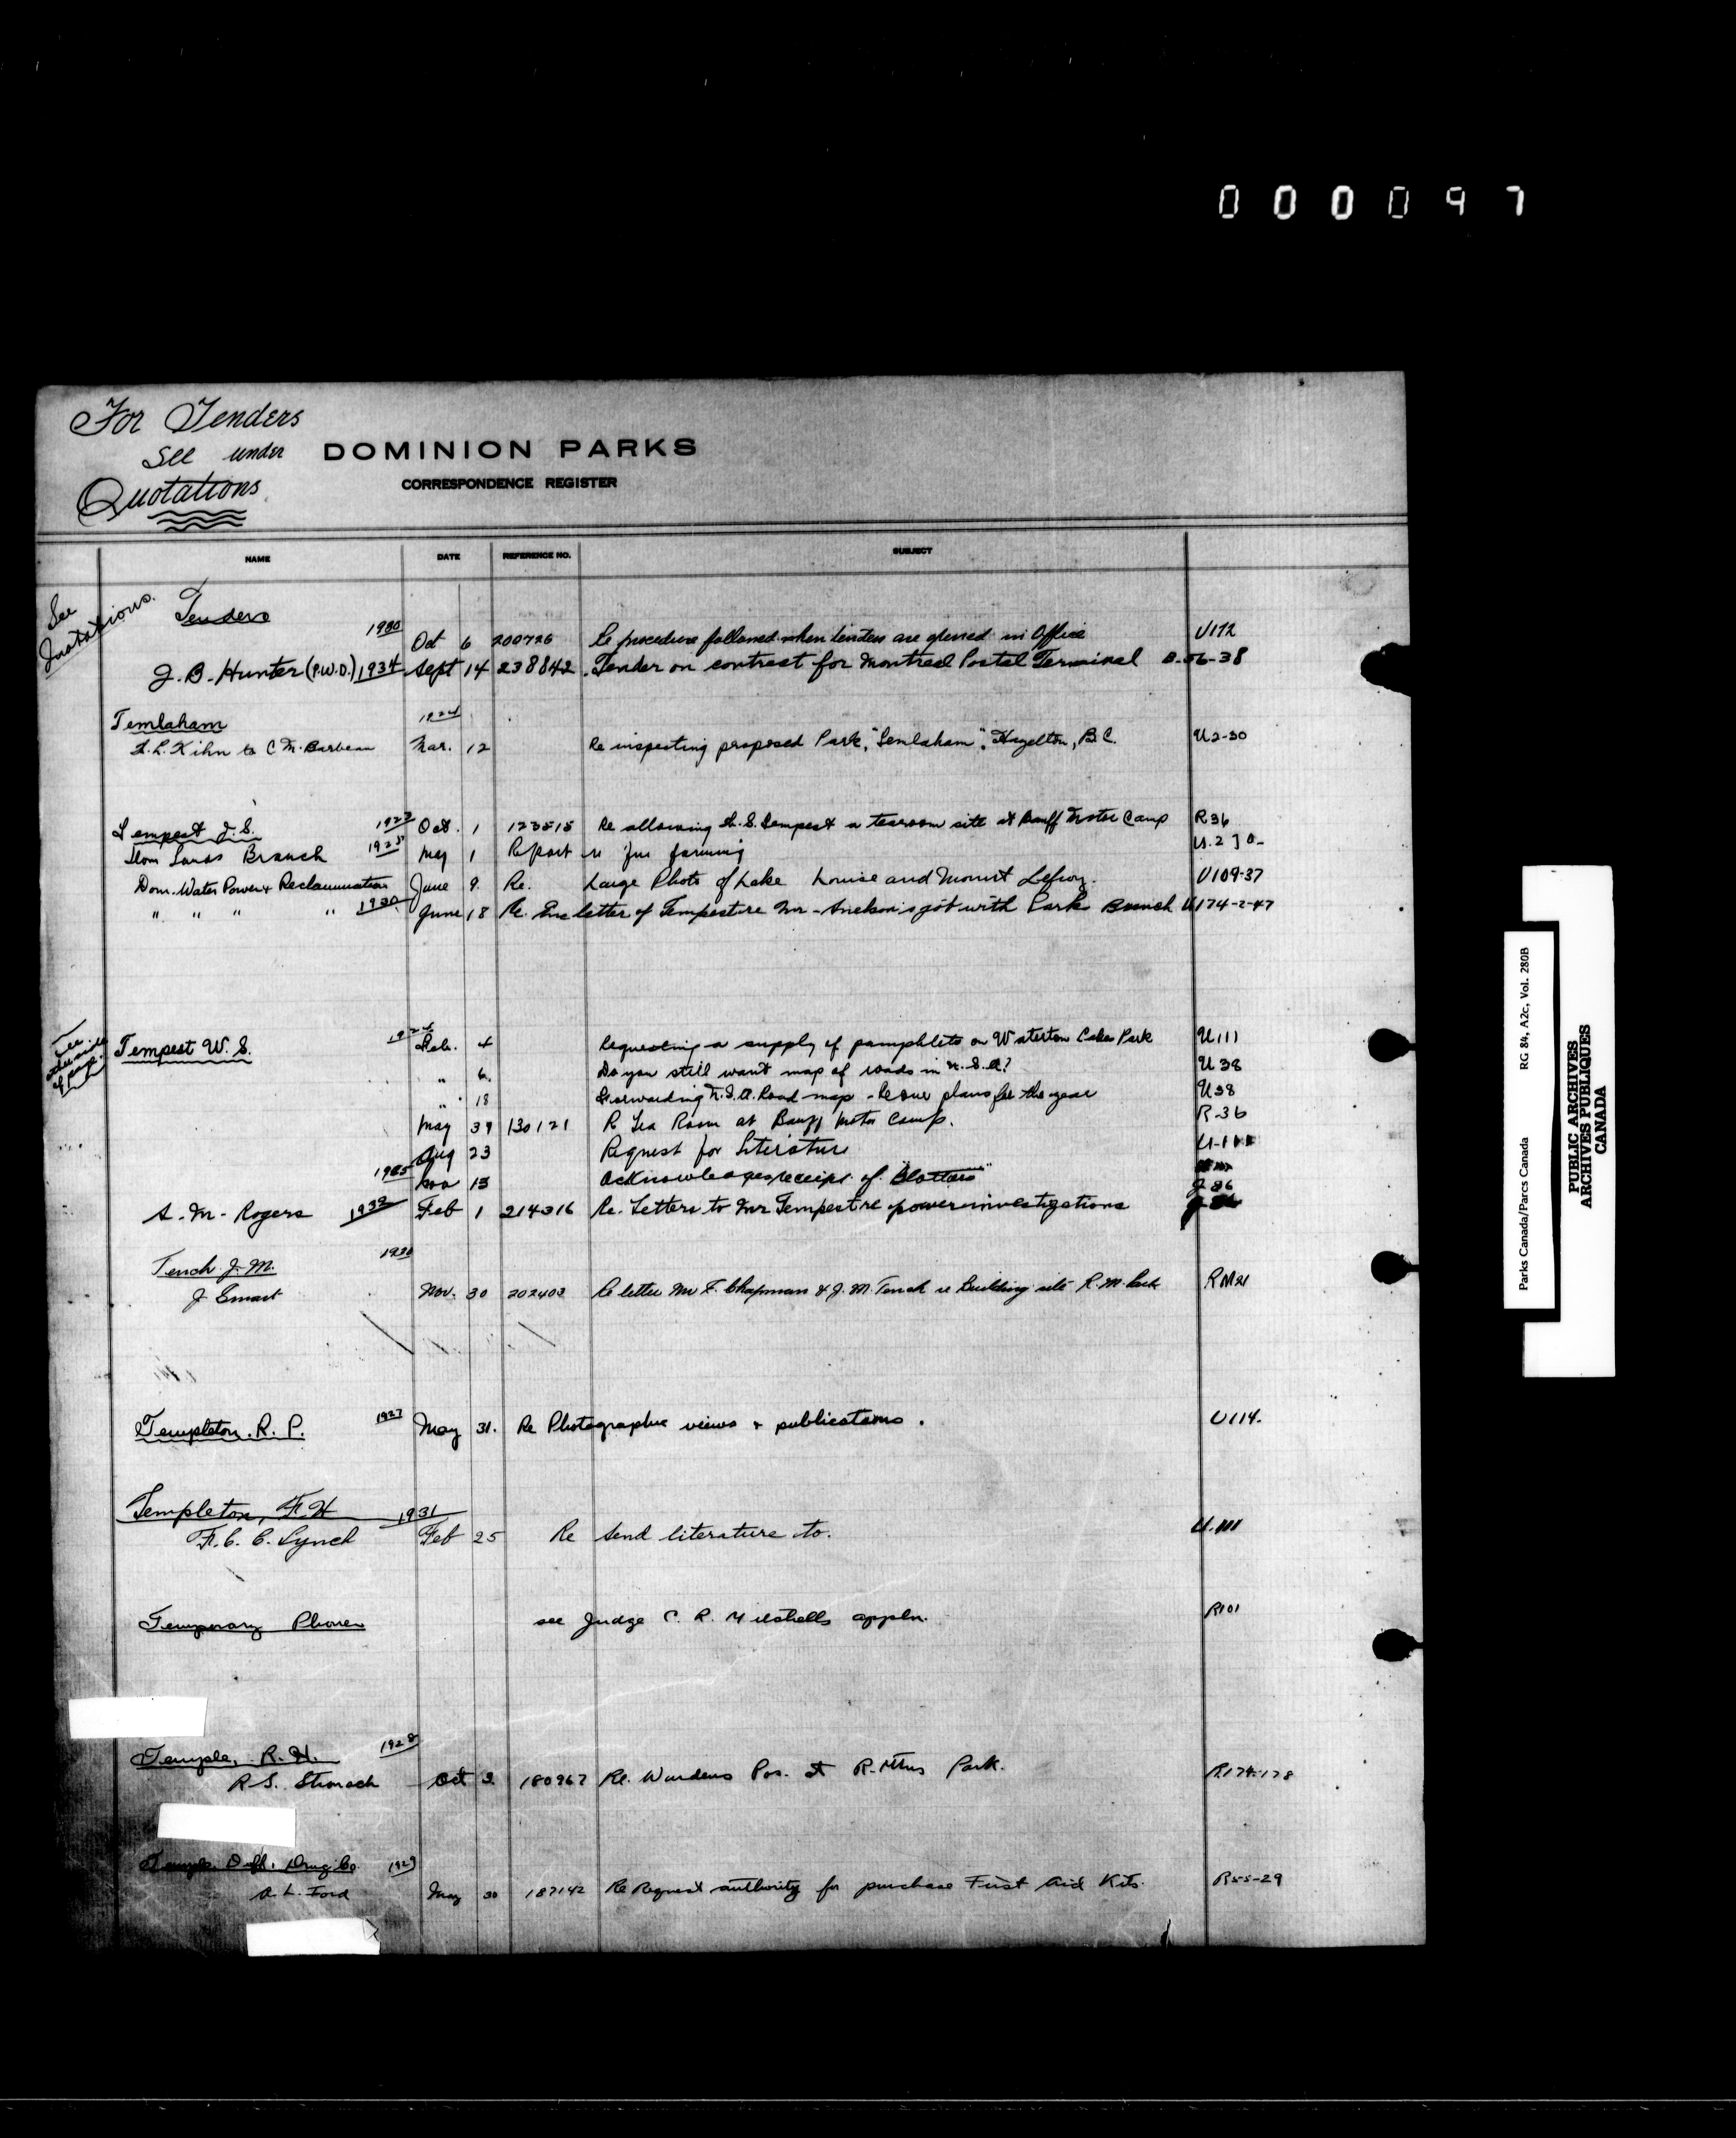 000097
For Tenders
See under
Quotations
DOMINION PARKS
CORRESPONDENCE REGISTER
NAME DATE REFERENCE NO. SUBJECT
See Quotations.
Tenders 1930 Oct 6 200726 Re procedure followed when tenders are opened in Office U172
J. B. Hunter (P.W.D.) 1934 Sept 14 238842 Tender on contract for Montreal Postal Terminal B-56-38
Temlaham 1924
L. Kihn to C M. Barbeau Mar. 12 Re inspecting proposed Park, "Temlaham", Hazelton, B.C. U2-30
Tempest J. S. Oct. 1 Re allowing S. Tempest a tearoom site at Banff Motor Camp R36
Dom Lands Branch May 1 Report re fur farming
Dom. Water Power & Reclamation June 9. Re. Large Photo of Lake Louise and Mount Lefroy. U109-37
" " " " 1930 June 18 Re. letter of Tempest re Mr job with Parks Branch U174-2-47
See other side of page.
Tempest W. S. 1924 Feb. 4 Requesting a supply of pamphlets on Waterton Lakes Park U111
" 6. Do you still want map of roads in U.S.A? U38
" 18 Forwarding U.S.A. Road map - Re our plans for the year U38
May 39 130121 R Tea Room at Banff Motor Camp. R-36
Aug 23 Request for Literature U-111
1925 Nov 13 Acknowledges receipt of "Blotters" J 86
A. M. Rogers 1932 Feb 1 214316 Re. Letters to Mr Tempest re power investigations
Tench J. M. 1930
J Smart Nov. 30 202403 Re letter Mr F. Chapman & J. M. Tench re Building site R. M. Park RM21
Templeton. R. P. 1927 May 31. Re Photographic views & publications. U114.
Templeton, F. H 1931
F. C. C. Lynch Feb 25 Re Send literature to. U.111
Temporary Phones see Judge C. R. Mitchells appln. R101
Temple, R. H. 1928
R S. Stronach Oct 3. 180967 Re. Wardens Pos. at R. Mtns Park. R174-178
Temple Duff. Drug Co. 1929
A. L. Ford May 30 187142 Re Request authority for purchase First Aid Kits. R55-29
Parks Canada/Parcs Canada RG 84, A2c, Vol. 280B
PUBLIC ARCHIVES
ARCHIVES PUBLIQUES
CANADA